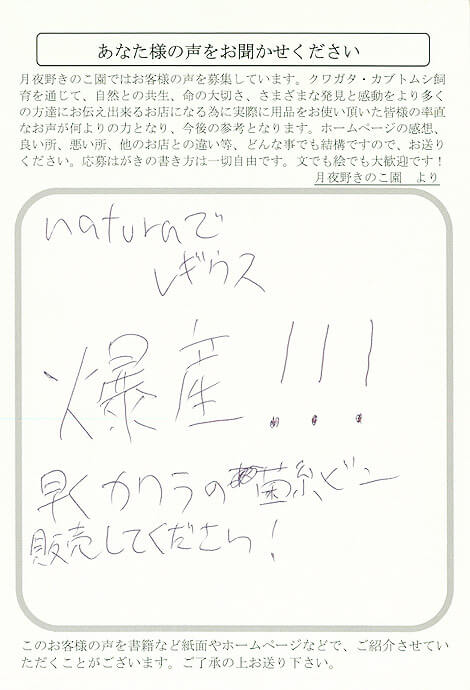 あなた様の声をお聞かせください
月夜野きのこ園ではお客様の声を募集しています。クワガタ・カブトムシ飼
育を通じて、自然との共生、命の大切さ、さまざまな発見と感動をより多く
の方達にお伝え出来るお店になる為に実際に用品をお使い頂いた皆様の率直
なお声が何よりの力となり、今後の参考となります。ホームページの感想、
良い所、悪い所、他のお店との違い等、どんな事でも結構ですので、お送り
ください。応募はがきの書き方は一切自由です。文でも絵でも大歓迎です！
月夜野きのこ園 より
naturaで
レギウス
爆産!!!
早くカワラの菌糸ビン
販売してください!
このお客様の声を書籍など紙面やホームページなどで、ご紹介させてい
ただくことがございます。ご了承の上お送り下さい。